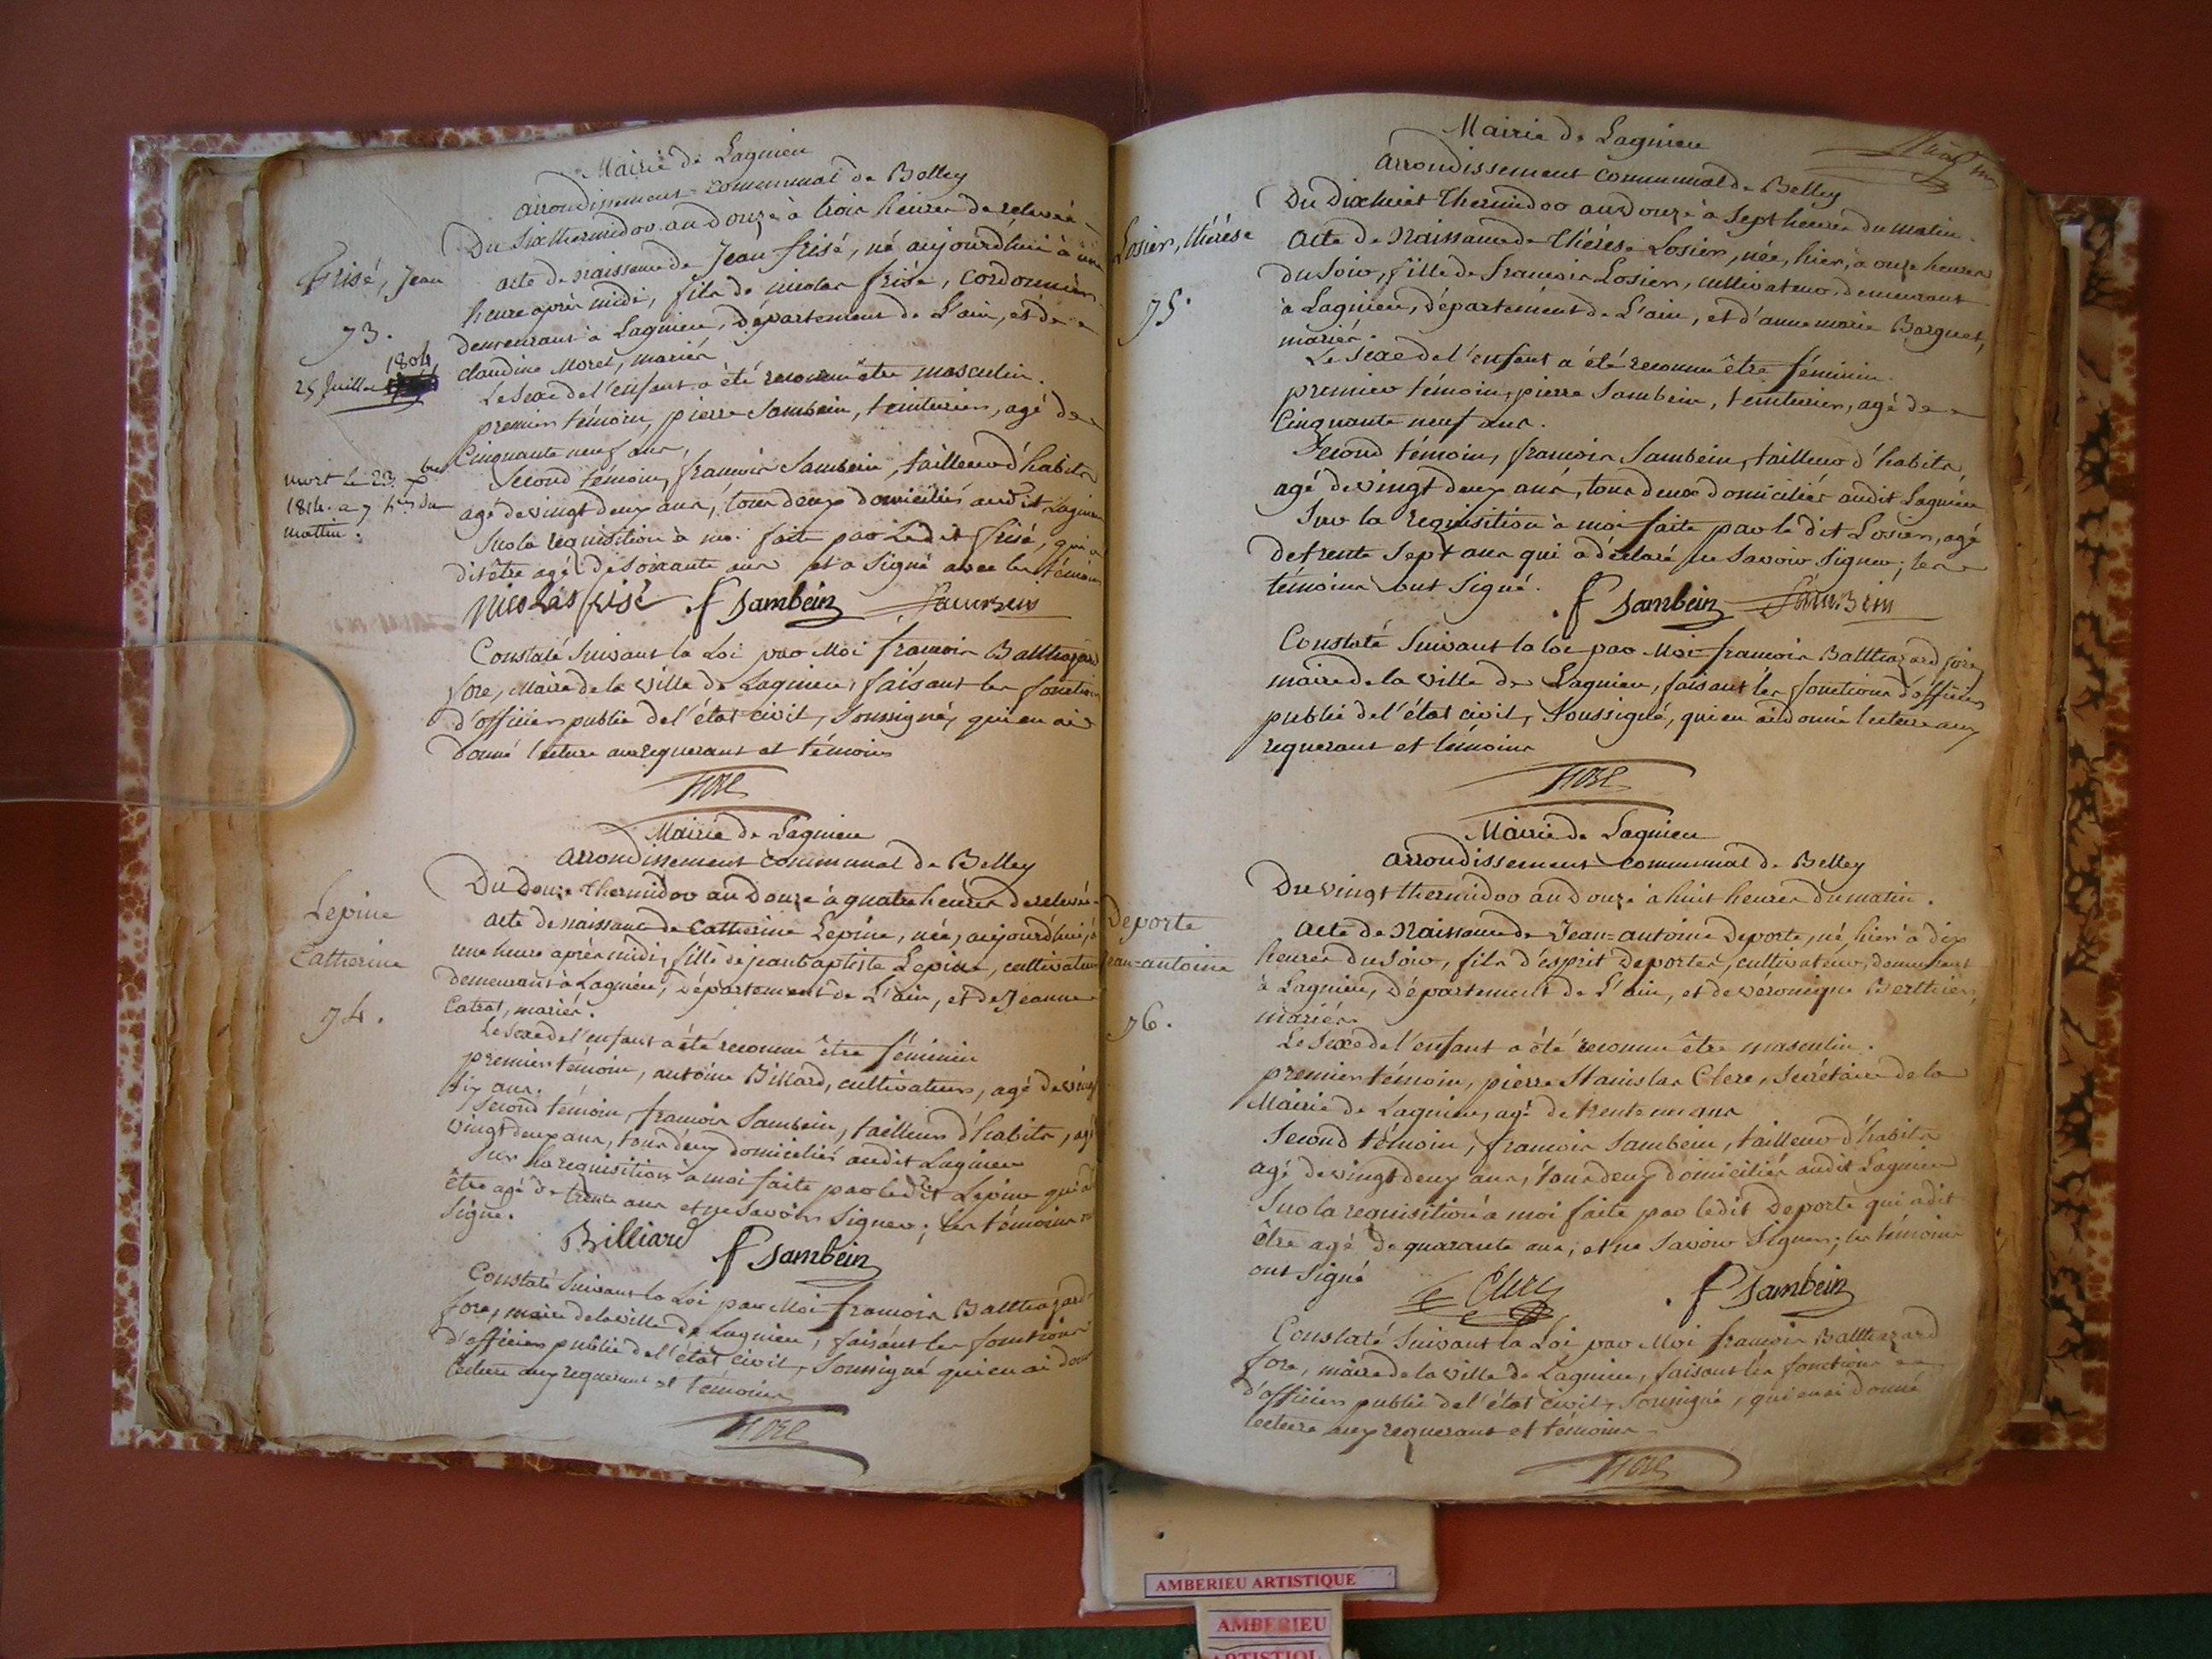 Mairie de Lagnieu
arrondissement communal de Belley
Du Six thermidor an douze à trois heures de relevée
Frisé, Jean
acte de naissance de Jean frisé, né aujourdhui à une
heure après midi, fils de nicolas frisé, cordonnier
73.
demeurant à Lagnieu, département de L'ain, et de
claudine Morel, mariés
1804
25 Juillet
Le Sexe de l'enfant a été reconnu être masculin.
premier témoin, pierre Sambein, teinturier, agé de
Cinquante neuf ans,
Second témoin, francois Sambein, tailleur d'habits
mort le 23 bre
1814. a 7 hres du
mattin.
agé de vingt deux ans, tous deux domiciliés audit Lagnieu
Sur la requisition à moi faite par Ledit frisé, qui a
dit être agé de Soixante ans et a Signé avec les témoins
Nicolas frisé f Sambein Sambein
Constaté Suivant la Loi par Moi francois Balthazard
fore, Maire de la ville de Lagnieu, faisant les fonctions
d'officier public de l'état civil, Soussigné, qui en ai
donné lecture aux requerant et témoins
fore
Mairie de Lagnieu
arrondissement communal de Belley
Du Douze thermidor an Douze à quatre heures de relevée
Lepine
Catherine
74.
acte de naissance de Catherine Lepine, née, aujourd'hui, à
une heure après midi, fille de jean baptiste Lepine, cultivateur
demeurant à Lagnieu, Département de L'ain, et de Jeanne
Catrat, mariés.
Le Sexe de l'enfant a été reconnu être féminin
premier témoin, antoine Billard, cultivateur, agé de vingt
six ans.
Second témoin, francois Sambein, tailleur d'habits, agé
vingt deux ans, tous deux domiciliés audit Lagnieu
Sur la requisition à moi faite par ledit Lepine qui a dit
être agé de trente ans et ne Savoir Signer; les témoins
Signé.
Billiard f Sambein
Constaté Suivant la Loi par Moi francois Balthazard
fore, maire de la ville de Lagnieu, faisant les fonctions
d'officier public de l'état civil, Soussigné qui en ai donné
lecture aux requerant et témoins
fore
Mairie de Lagnieu
arrondissement communal de Belley
Du Dix huit thermidor an Douze à Sept heures du matin.
Losier, thérése
75.
Acte de Naissance de thérése Losier, née, hier, à onze heures
du Soir, fille de francois Losier, cultivateur, demeurant
à Lagnieu, département de L'ain, et d'anne marie Barquet,
mariés.
Le Sexe de l'enfant a été reconnu être féminin.
premier témoin, pierre Sambein, teinturier, agé de
Cinquante neuf ans.
Second témoin, francois Sambein, tailleur d'habits
agé de vingt deux ans, tous deux domiciliés audit Lagnieu
Sur la requisition à moi faite par le dit Losier, agé
de trente Sept ans qui a déclaré ne Savoir Signer; les
témoins ont Signé.
f Sambein Sambein
Constaté Suivant la loi par Moi francois Balthazard fore
maire de la ville de Lagnieu, faisant les fonctions d'officier
public de l'état civil, Soussigné, qui en ai donné lecture aux
requerant et témoins
fore
Mairie de Lagnieu
arrondissement communal de Belley
Du vingt thermidor an Douze à huit heures du matin.
Deporte
Jean-antoine
76.
Acte de Naissance de Jean-antoine Deporte, né, hier à dix
heures du Soir, fils d'esprit Deportes, cultivateur, demeurant
à Lagnieu, Département de L'ain, et de véronique Berthier,
mariés.
Le Sexe de l'enfant a été reconnu être masculin.
premier témoin, pierre Stanislas Clerc, Secrétaire de la
Mairie de Lagnieu, agé de trente un ans
Second témoin, francois Sambein, tailleur d'habits
agé de vingt deux ans, tous deux domiciliés audit Lagnieu
Sur la requisition à moi faite par ledit Deporte qui a dit
être agé de quarante ans, et ne Savoir Signer; les témoins
ont Signé
Clerc f Sambein
Constaté Suivant la Loi par Moi francois Balthazard
fore, maire de la ville de Lagnieu, faisant les fonctions
d'officier public de l'état civil, Soussigné, qui en ai donné
lecture aux requerant et témoins
fore
AMBERIEU ARTISTIQUE
AMBERIEU
ARTISTIQ